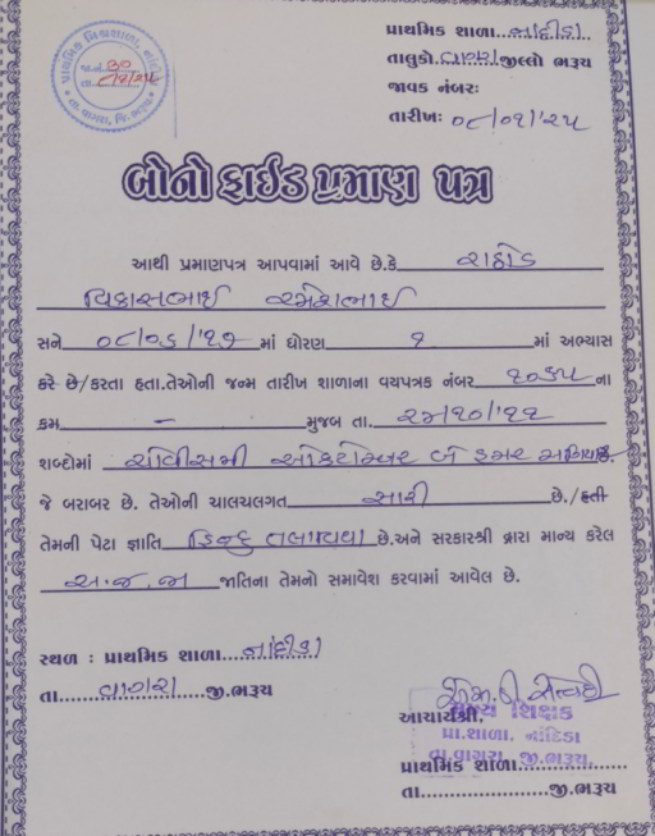 પ્રાથમિક મિશ્રશાળા, નાંદીડા
જા.નં 30
તા. ૮/૧/૨૫
તા. વાગરા, જિ. ભરૂચ
પ્રાથમિક શાળા...નાંદીડા..
તાલુકો.વાગરા.જીલ્લો ભરૂચ
જાવક નંબરઃ
તારીખઃ ૦૮/૦૧/૨૫
બોનો ફાઈડ પ્રમાણ પત્ર
આથી પ્રમાણપત્ર આપવામાં આવે છે.કે રાઠોડ
વિકાસભાઈ રમેશભાઈ
સને ૦૮/૦૬/'૧૭ માં ધોરણ ૧ માં અભ્યાસ
કરે છે/કરતા હતા.તેઓની જન્મ તારીખ શાળાના વયપત્રક નંબર ૧૦૬૫ ના
ક્રમ - મુજબ તા. ૨૪/૧૦/'૧૧
શબ્દોમાં ચોવીસમી ઓકટોમ્બર બે હજાર અગિયાર છે.
જે બરાબર છે. તેઓની ચાલચલગત સારી છે./હતી
તેમની પેટા જ્ઞાતિ હિન્દુ તલાવિયા છે.અને સરકારશ્રી દ્રારા માન્ય કરેલ
અ.જ.જા જાતિના તેમનો સમાવેશ કરવામાં આવેલ છે.
સ્થળ : પ્રાથમિક શાળા....નાંદીડા
તા.....વાગરા.....જી.ભરૂચ
આચાર્યશ્રી,
મુખ્ય શિક્ષક
પ્રા.શાળા. નાંદિડા
તા.વાગરા, જી.ભરૂચ.
પ્રાથમિક શાળા....................
તા.......................જી.ભરૂચ